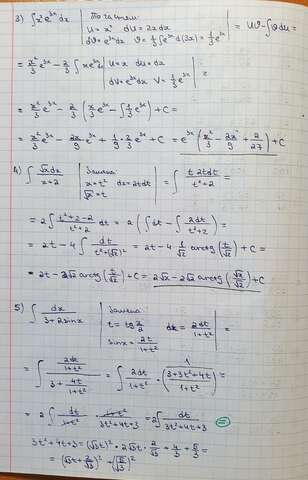 3) ∫x²e³ˣdx | По частям
U = x² dU = 2xdx
dV = e³ˣdx V = 1/3 ∫e³ˣd(3x) = 1/3 e³ˣ | = UV - ∫VdU =
= x²/3 e³ˣ - 2/3 ∫xe³ˣdx | U = x dU = dx
dV = e³ˣdx V = 1/3 e³ˣ | =
= x²/3 e³ˣ - 2/3 (x/3 e³ˣ - ∫1/3 e³ˣ) + C =
= x²/3 e³ˣ - 2x/9 e³ˣ + 1/9 · 2/3 e³ˣ + C = e³ˣ (x²/3 - 2x/9 + 2/27) + C
4) ∫ √x dx/(x+2) | Замена
x = t² dx = 2tdt
√x = t | = ∫ t·2tdt/(t²+2) =
= 2∫ (t²+2-2)/(t²+2) dt = 2(∫dt - ∫ 2dt/(t²+2)) =
= 2t - 4∫ dt/(t²+(√2)²) = 2t - 4 1/√2 arctg(t/√2) + C =
= 2t - 2√2 arctg(t/√2) + C = 2√x - 2√2 arctg(√x/√2) + C
5) ∫ dx/(3+2sinx) | Замена
t = tg x/2 dx = 2dt/(1+t²)
sinx = 2t/(1+t²) | =
= ∫ (2dt/(1+t²))/(3 + 4t/(1+t²)) = ∫ 2dt/(1+t²) · 1/((3+3t²+4t)/(1+t²)) =
= 2∫ dt/(1+t²) · (1+t²)/(3t²+4t+3) = 2∫ dt/(3t²+4t+3) =
3t²+4t+3 = (√3t)² + 2√3t · 2/√3 + 4/3 + 5/3 =
= (√3t + 2/√3)² + (√5/√3)²